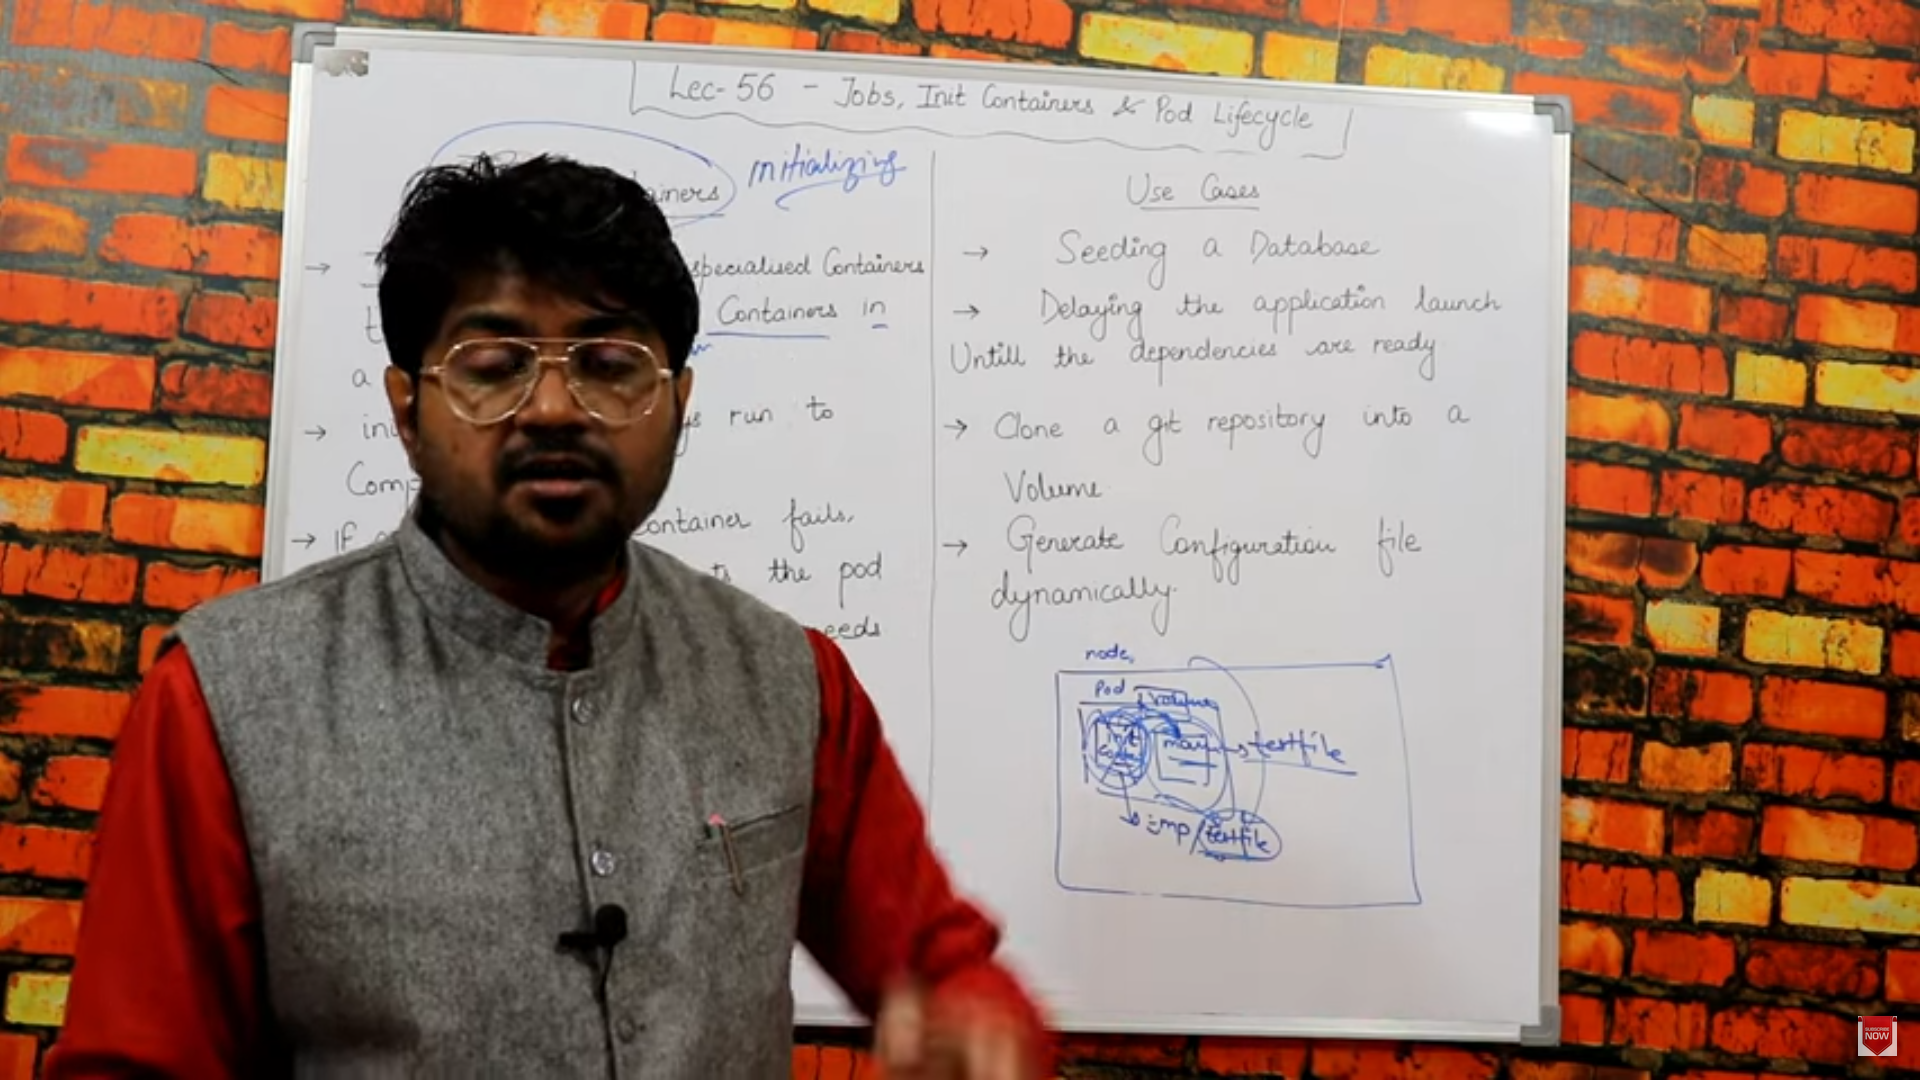 Lec-56 - Jobs, Init Containers & Pod Lifecycle
initializing
specialised Containers
Containers in
a
run to
container fails,
the pod
Use Cases
→ Seeding a Database
→ Delaying the application launch
Untill the dependencies are ready
→ Clone a git repository into a
Volume.
→ Generate Configuration file
dynamically.
node,
Pod
Volume
init
main
testfile
testfile
SUBSCRIBE
NOW